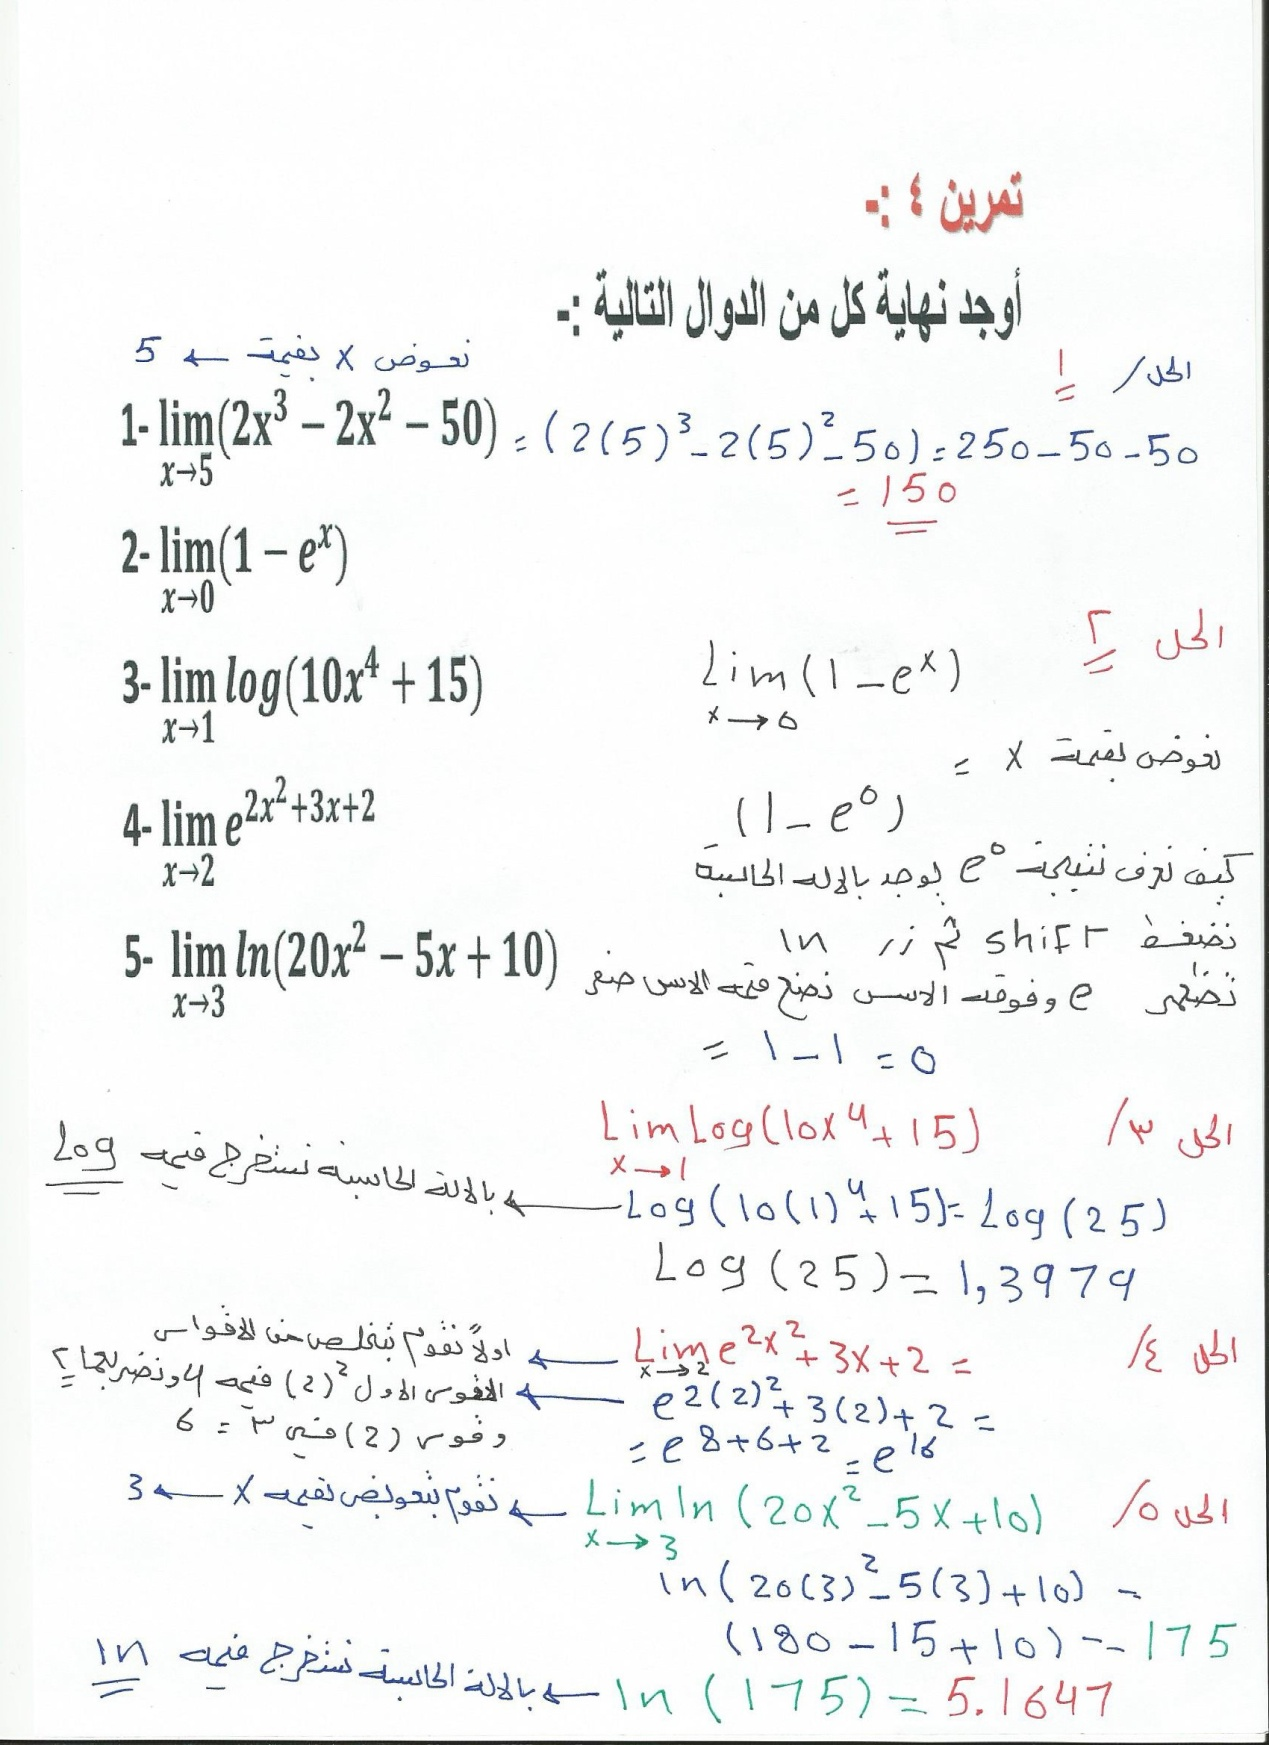 تمرين ٤ :-
أوجد نهاية كل من الدوال التالية :-
الحل / ١
نعوض x بقيمة ← 5
1- lim x→5 (2x³ − 2x² − 50) = (2(5)³ - 2(5)² - 50) = 250 - 50 - 50
= 150
2- lim x→0 (1 − eˣ)
3- lim x→1 log(10x⁴ + 15)
4- lim x→2 e^{2x²+3x+2}
5- lim x→3 ln(20x² − 5x + 10)
الحل ٢
Lim x→0 (1 - eˣ)
نعوض بقيمة x =
(1 - e⁰)
كيف نعرف نتيجة e⁰ يوجد بالاله الحاسبة
نضغط shift ثم زر ln
تظهر e وفوقه الاسس نضع قيمه الاس صفر
= 1 - 1 = 0
الحل ٣/
Lim x→1 Log(10x⁴ + 15)
Log(10(1)⁴ + 15) = Log(25) ← بالالة الحاسبه نستخرج قيمه Log
Log(25) = 1,3979
الحل ٤/
Lim x→2 e^{2x² + 3x + 2} = ← اولاً نقوم بتخلص من الاقواس
e^{2(2)² + 3(2) + 2} = ← القوس الاول (2)² قيمه 4 ونضربها ٢
وقوس (2) في ٣ = 6
= e^{8+6+2} = e^{16}
الحل ٥/
Lim x→3 ln (20x² - 5x + 10) ← نقوم بتعويض بقيمه x ← 3
ln(20(3)² - 5(3) + 10) =
(180 - 15 + 10) = 175
ln (175) = 5.1647 ← بالالة الحاسبة نستخرج قيمه ln